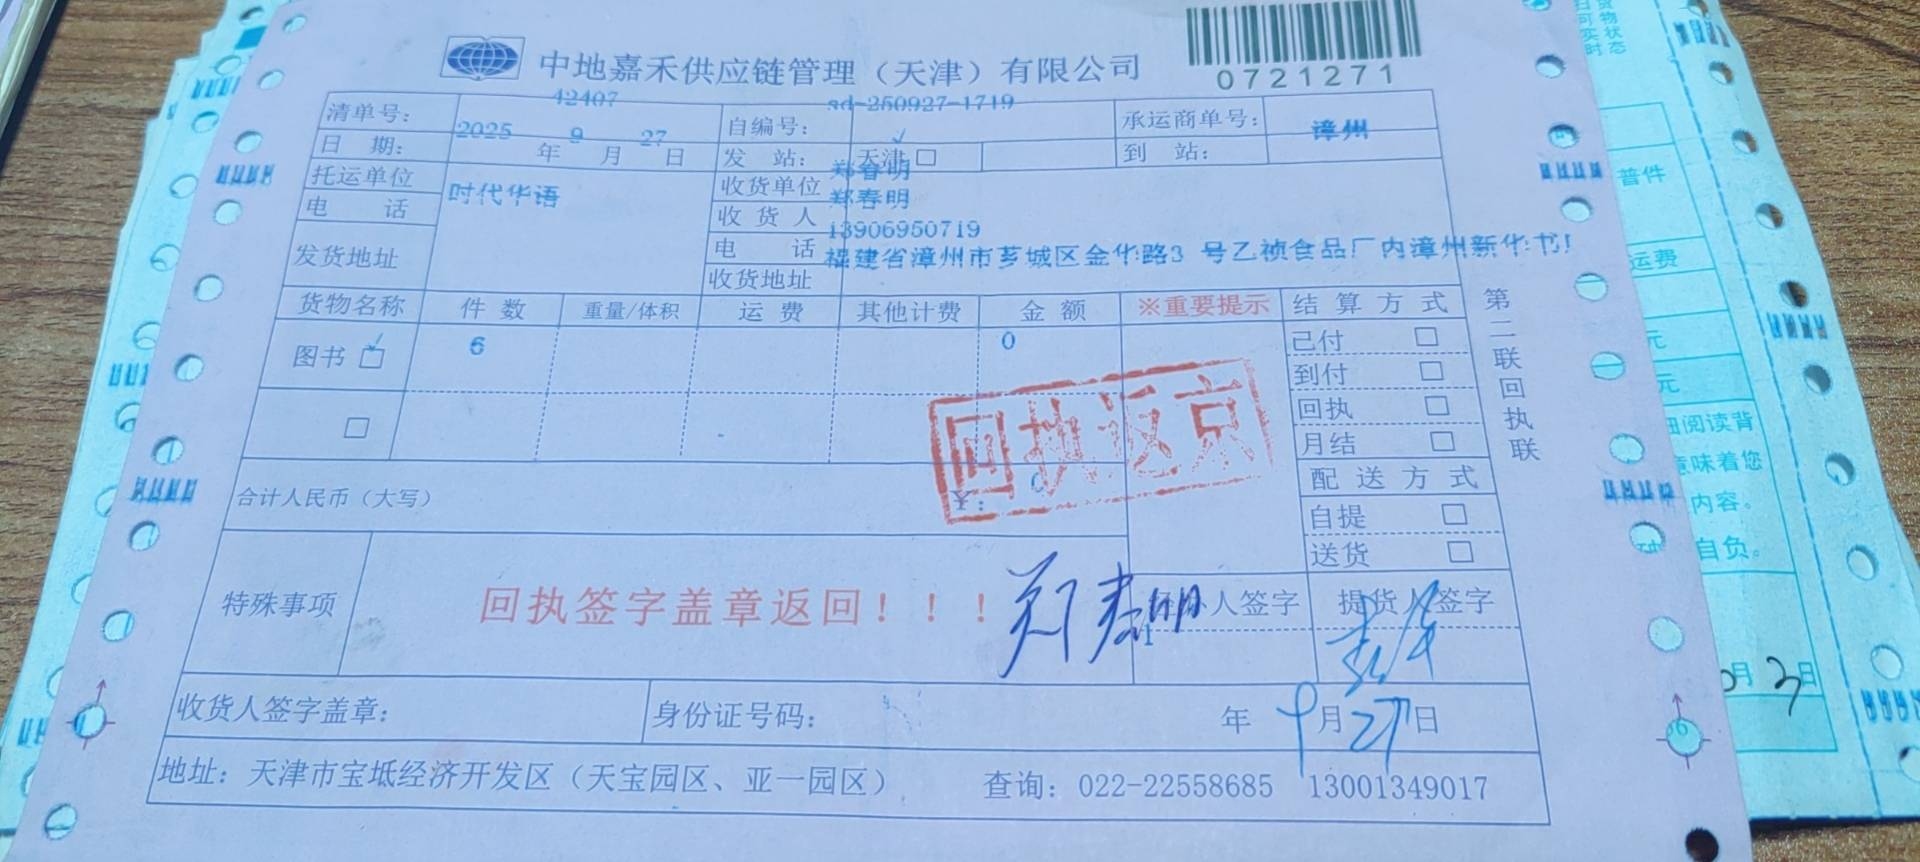 中地嘉禾供应链管理（天津）有限公司
0721271
清单号： 42407 自编号： sd-250927-1719 承运商单号：
日 期： 2025 年 9 月 27 日 发 站： 天津□ 到 站： 漳州
托运单位 时代华语 收货单位 郑春明
电 话 收货人 郑春明
发货地址 电 话 13906950719
收货地址 福建省漳州市芗城区金华路3 号乙祯食品厂内漳州新华书
货物名称 件 数 重量/体积 运 费 其他计费 金 额 ※重要提示 结 算 方 式
图书 □ 6 0 已付 □
到付 □
□ 回执 □
月结 □
回执返京
合计人民币（大写） 配 送 方 式
自提 □
送货 □
特殊事项 回执签字盖章返回！！！ 郑春明 人签字 提货人签字
收货人签字盖章： 身份证号码： 年 9月27日
地址：天津市宝坻经济开发区（天宝园区、亚一园区） 查询：022-22558685 13001349017
第二联回执联
普件
运费
元
元
阅读背
意味着您
内容。
自负。
月3日